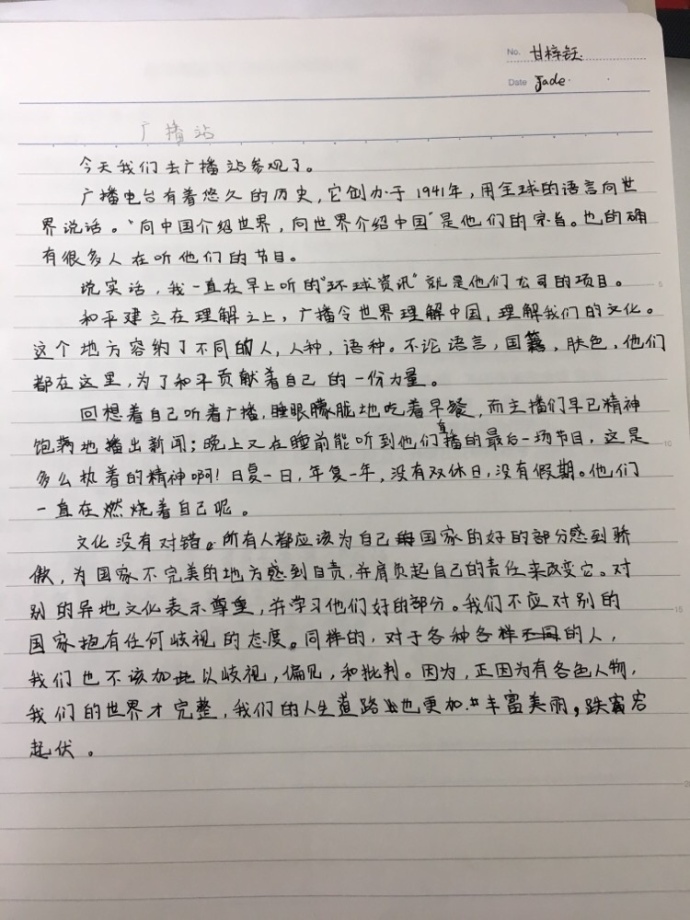 No. 甘梓钰
Date Jade
广播站
今天我们去广播站参观了。
广播电台有着悠久的历史,它创办于1941年,用全球的语言向世
界说话。"向中国介绍世界,向世界介绍中国"是他们的宗旨。也的确
有很多人在听他们的节目。
说实话,我一直在早上听的"环球资讯"就是他们公司的项目。
和平建立在理解之上,广播令世界理解中国,理解我们的文化。
这个地方容纳了不同的人,人种,语种。不论语言,国籍,肤色,他们
都在这里,为了和平贡献着自己的一份力量。
回想着自己听着广播,睡眼朦胧地吃着早餐,而主播们早已精神
饱满地播出新闻;晚上又在睡前能听到他们直播的最后一场节目,这是
多么执着的精神啊!日复一日,年复一年,没有双休日,没有假期。他们
一直在燃烧着自己呢。
文化没有对错。所有人都应该为自己国家的好的部分感到骄
傲,为国家不完美的地方感到自责,并肩负起自己的责任来改变它。对
别的异地文化表示尊重,并学习他们好的部分。我们不应对别的
国家抱有任何歧视的态度。同样的,对于各种各样不同的人,
我们也不该加此以歧视,偏见,和批判。因为,正因为有各色人物,
我们的世界才完整,我们的人生道路也更加丰富美丽,跌宕
起伏。